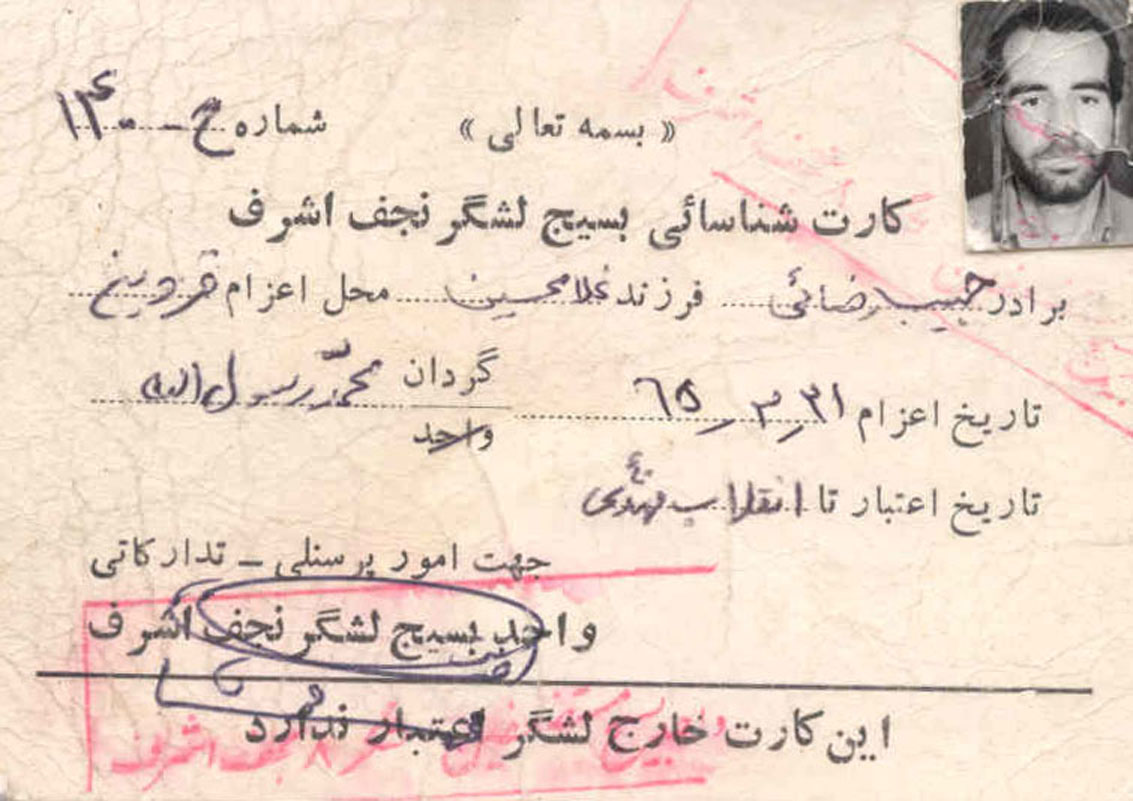 « بسمه تعالی » شماره ح - ۱۴۰۰
کارت شناسائی بسیج لشگر نجف اشرف
برادر حبیب رضائی فرزند غلامحسین محل اعزام قزوین
تاریخ اعزام ۳۱ ر ۳ ر ۶۵ گردان محمد رسول الله
واحد
تاریخ اعتبار تا انقلاب مهدی
جهت امور پرسنلی - تدارکاتی
واحد بسیج لشگر نجف اشرف
این کارت خارج لشگر اعتبار ندارد